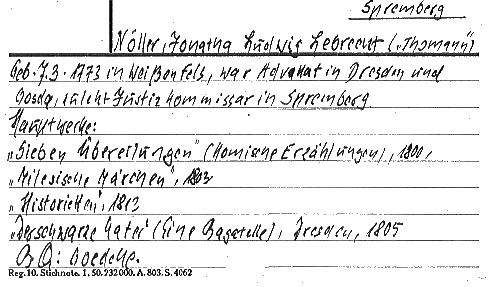 Spremberg
Nöller, Jonatha Ludwig Lebrecht („Thomann")
Geb. 7.3. 1773 in Weißenfels, war Advokat in Dresden und
Gosda, zuletzt Justizkommissar in Spremberg.
Hauptwerke:
„Sieben Übereilungen" (Komische Erzählungen), 1800,
„Milesische Märchen", 1803
„Historietten", 1813
„Der schwarze Kater" (Eine Bagatelle), Dresden, 1805
BQ: Goedeke.
Reg. 10. Stichnote. 1, 50. 232 000. A. 803. S. 4062